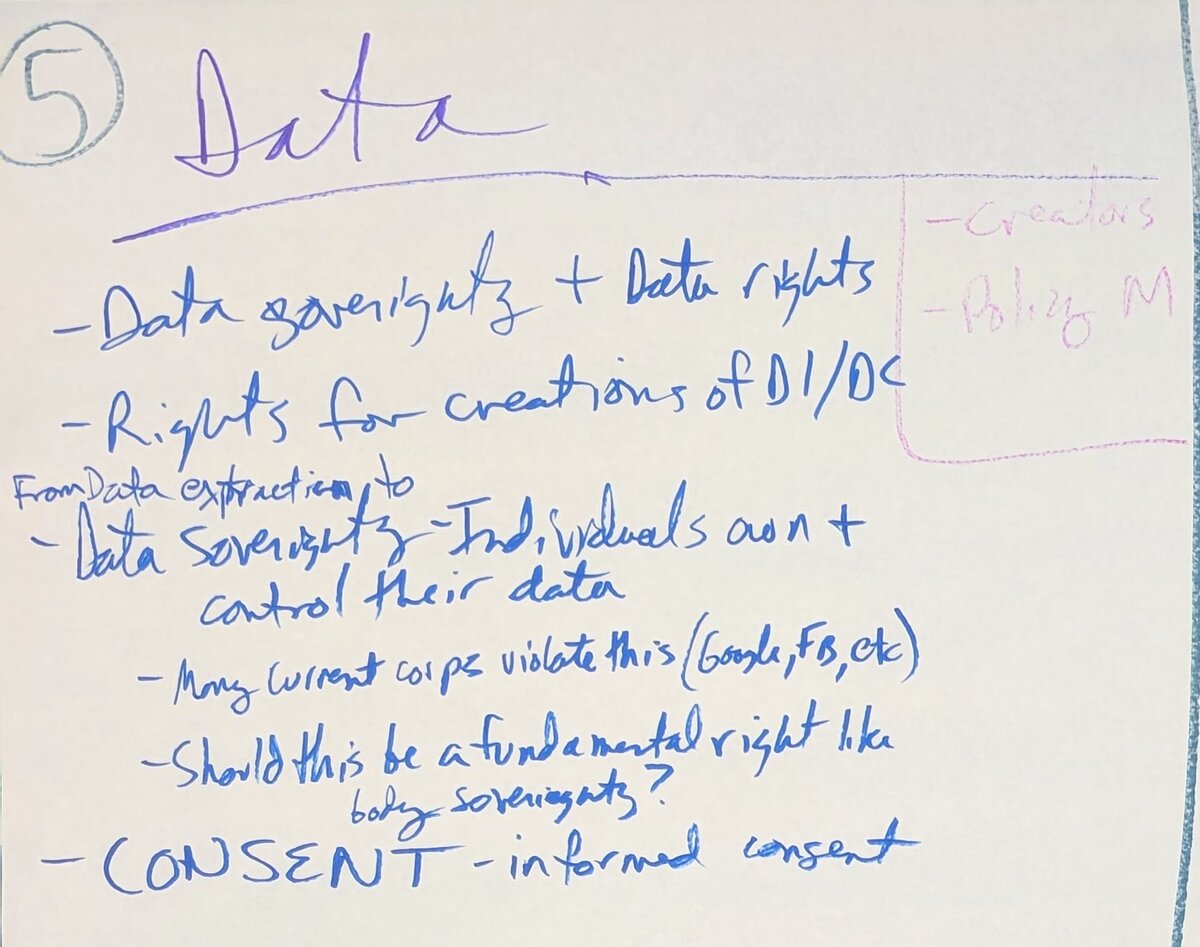 5
Data
- Creators
- Policy M
- Data soverignty + Data rights
- Rights for creations of DI/DC
From Data extraction, to
- Data Soverignty - Individuals own +
control their data
- Many current corps violate this (Google, FB, etc)
- Should this be a fundamental right like
body soveriegnty?
- CONSENT - informed consent